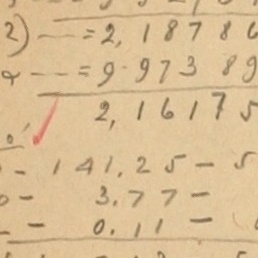 2) — = 2, 1 8 7 8 6
— = 9.973 89
2, 1 6 1 7 5
- 141.25 - 5
- 3.77 -
- - 0.11 -